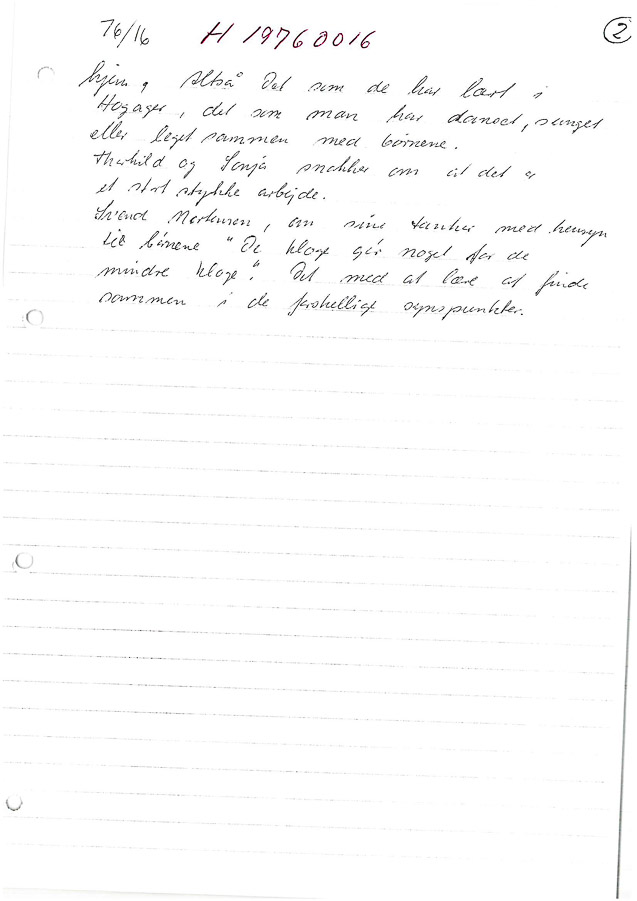 76/16 H 19760016 2
hjem, Altså det som de har lært i
Hogager, det som man har danset, sunget
eller leget sammen med børnene.
Thorhild og Sonja snakker om at det er
et stort stykke arbejde.
Svend Mortensen, om sine tanker med hensyn
til børnene "De kloge gør noget for de
mindre kloge". Det med at lære at finde
sammen i de forskellige synspunkter.